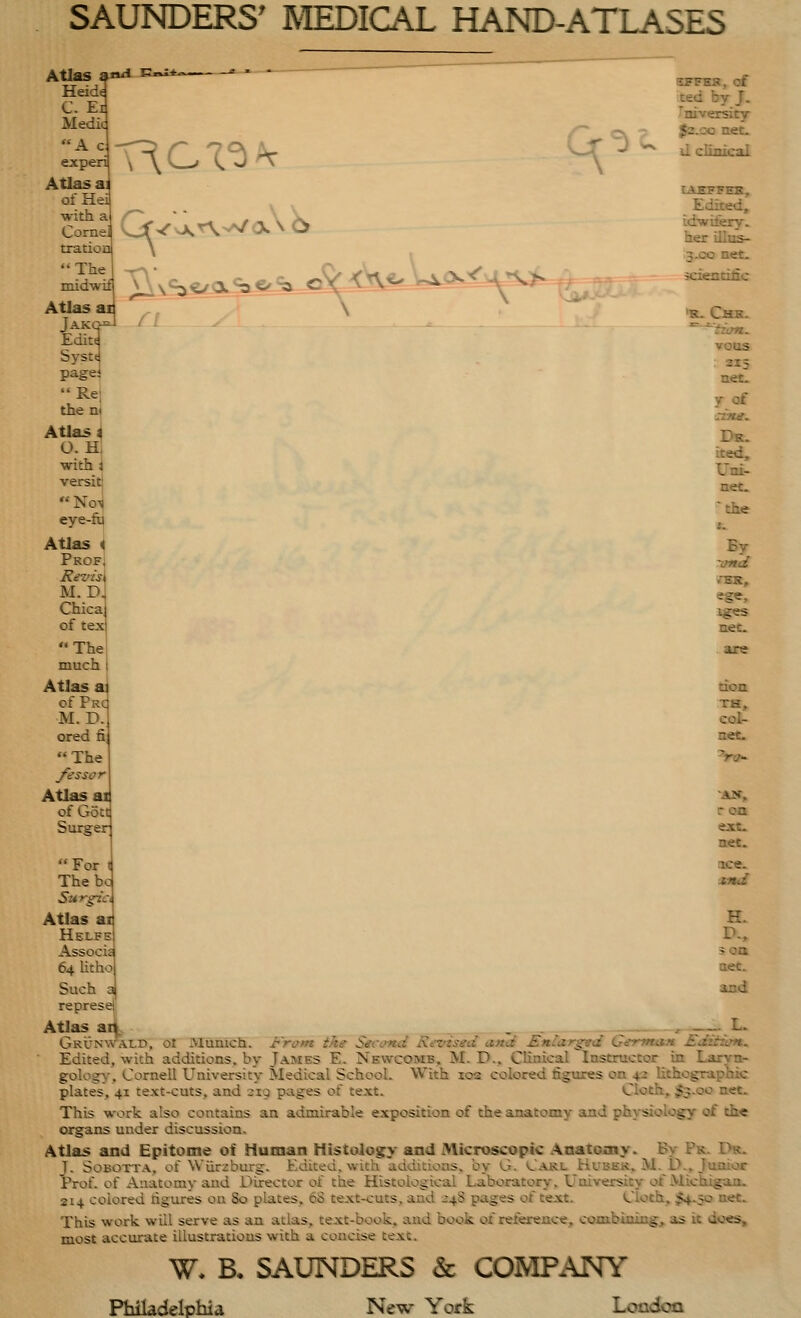 SAUNDERS' MEDICAL HAND-ATLASES
Atlas and
Heide
C. E
Medic
"A c
experi
Atlas a
of Hei
with a
Cornel
tration
"The
midwif
Atlas an
Edite
Syste
pages
"Re
the n
Atlas
O. H
with
versit
"Nov
eye-fu
Atlas
Prof.
Revis
M. D.
Chica
of text
"The
much
Atlas a
of Pro
M. D.
ored fi
"The
fessor
Atlas an
of Gött
Surger
"For
The bo
Surgic
Atlas an
Helfe
Associa
64 litho
Such a
represe
Atlas an
RC78
G92
Grünwald
Diseases of the larynx
effer, of
ted by J.
niversity
$2.00 net.
d clinical
aeffer,
Edited,
idwifery.
her illus-
3.00 net.
scientific
r. Chr.
tion.
vous
215
net.
y of
cine.
Dr.
ited,
Uni-
net.
the
By
and
ver,
ege,
ages
net.
are
tion
th,
col-
net.
Pro-
an,
r on
ext.
net.
ace.
and
H.
D.,
s on
net.
and
L.
Grünwald, of Munich. From the Second Revised and Enlarged German Edition.
Edited, with additions, by James E. Newcomb, M. D., Clinical Instructor in Laryn-
gology, Cornell University Medical School. With 102 colored figures on 42 lithographic
plates, 41 text-cuts, and 219 pages of text. Cloth, $3.00 net.
This work also contains an admirable exposition of the anatomy and physiology of the
organs under discussion.
Atlas and Epitome of Human Histology and Microscopic Anatomy. By Pr. Dr.
J. Sobotta, of Würzburg. Edited, with additions, by G. Carl Huber, M. D., Junior
Prof. of Anatomy and Director of the Histological Laboratory, University of Michigan.
214 colored figures on 80 plates, 68 text-cuts, and 248 pages of text. Cloth, $4.50 net.
This work will serve as an atlas, text-book, and book of reference, combining, as it does,
most accurate illustrations with a concise text.
W. B. SAUNDERS & COMPANY
Philadelphia New York London